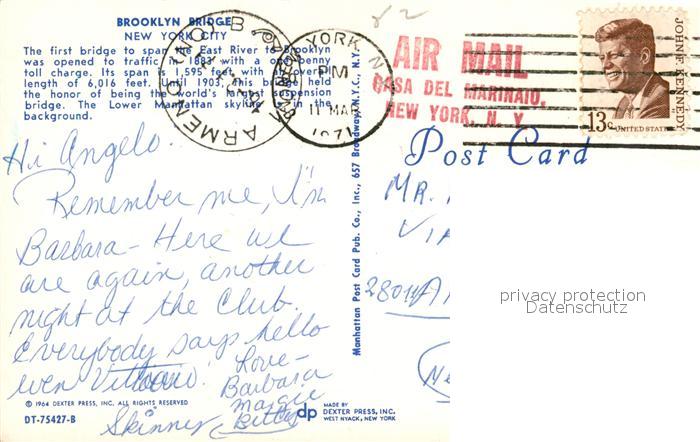 BROOKLYN BRIDGE
NEW YORK CITY
The first bridge to span the East River to Brooklyn
was opened to traffic in 1883 with a one penny
toll charge. Its span is 1,595 feet with an overall
length of 6,016 feet. Until 1903, this bridge held
the honor of being the world's largest suspension
bridge. The Lower Manhattan skyline is in the
background.
YORK, N
PM
11 MAR
1971
ARMENO
AIR MAIL
CASA DEL MARINAIO,
NEW YORK, N. Y.
JOHN F. KENNEDY
13c UNITED STATES
Post Card
Hi Angelo.
Remember me, I'm
Barbara - Here we
are again, another
night at the Club.
Everybody says hello
even Vittorio!
Love -
Barbara
Margie
Betty
Skinner
MR.
VIA
28011 A
Manhattan Post Card Pub. Co., Inc., 657 Broadway, N.Y.C., N.Y.
privacy protection
Datenschutz
© 1964 DEXTER PRESS, INC. ALL RIGHTS RESERVED
DT-75427-B
dp
MADE BY
DEXTER PRESS, INC.
WEST NYACK, NEW YORK